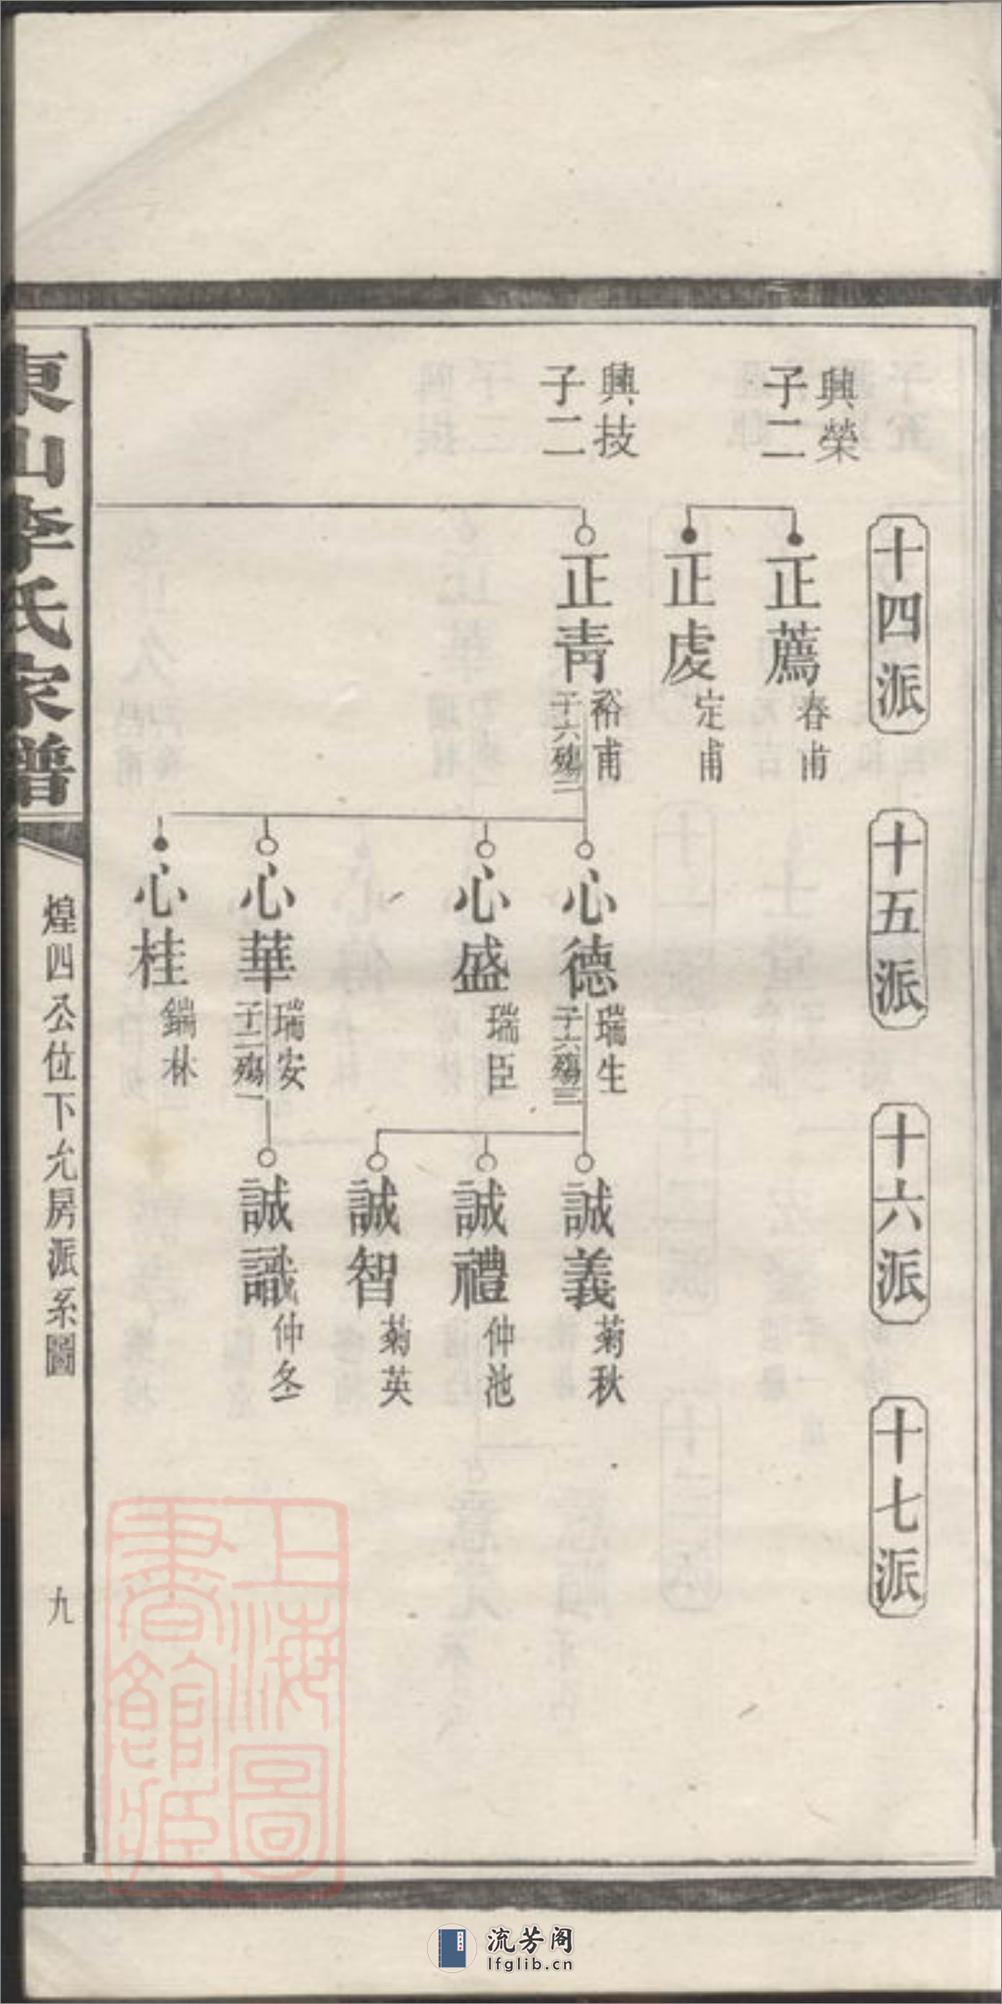 十四派
十五派
十六派
十七派
興榮
子二
正薦
春甫
正虔
定甫
興技
子二
正青
裕甫
子六殤二
心德
瑞生
子六殤三
誠義
菊秋
誠禮
仲池
誠智
菊英
心盛
瑞臣
心華
瑞安
子二殤一
誠識
仲冬
心桂
鍴林
東山李氏家譜
煌四公位下允房派系圖
九
上海圖書館藏
流芳阁
lfglib.cn